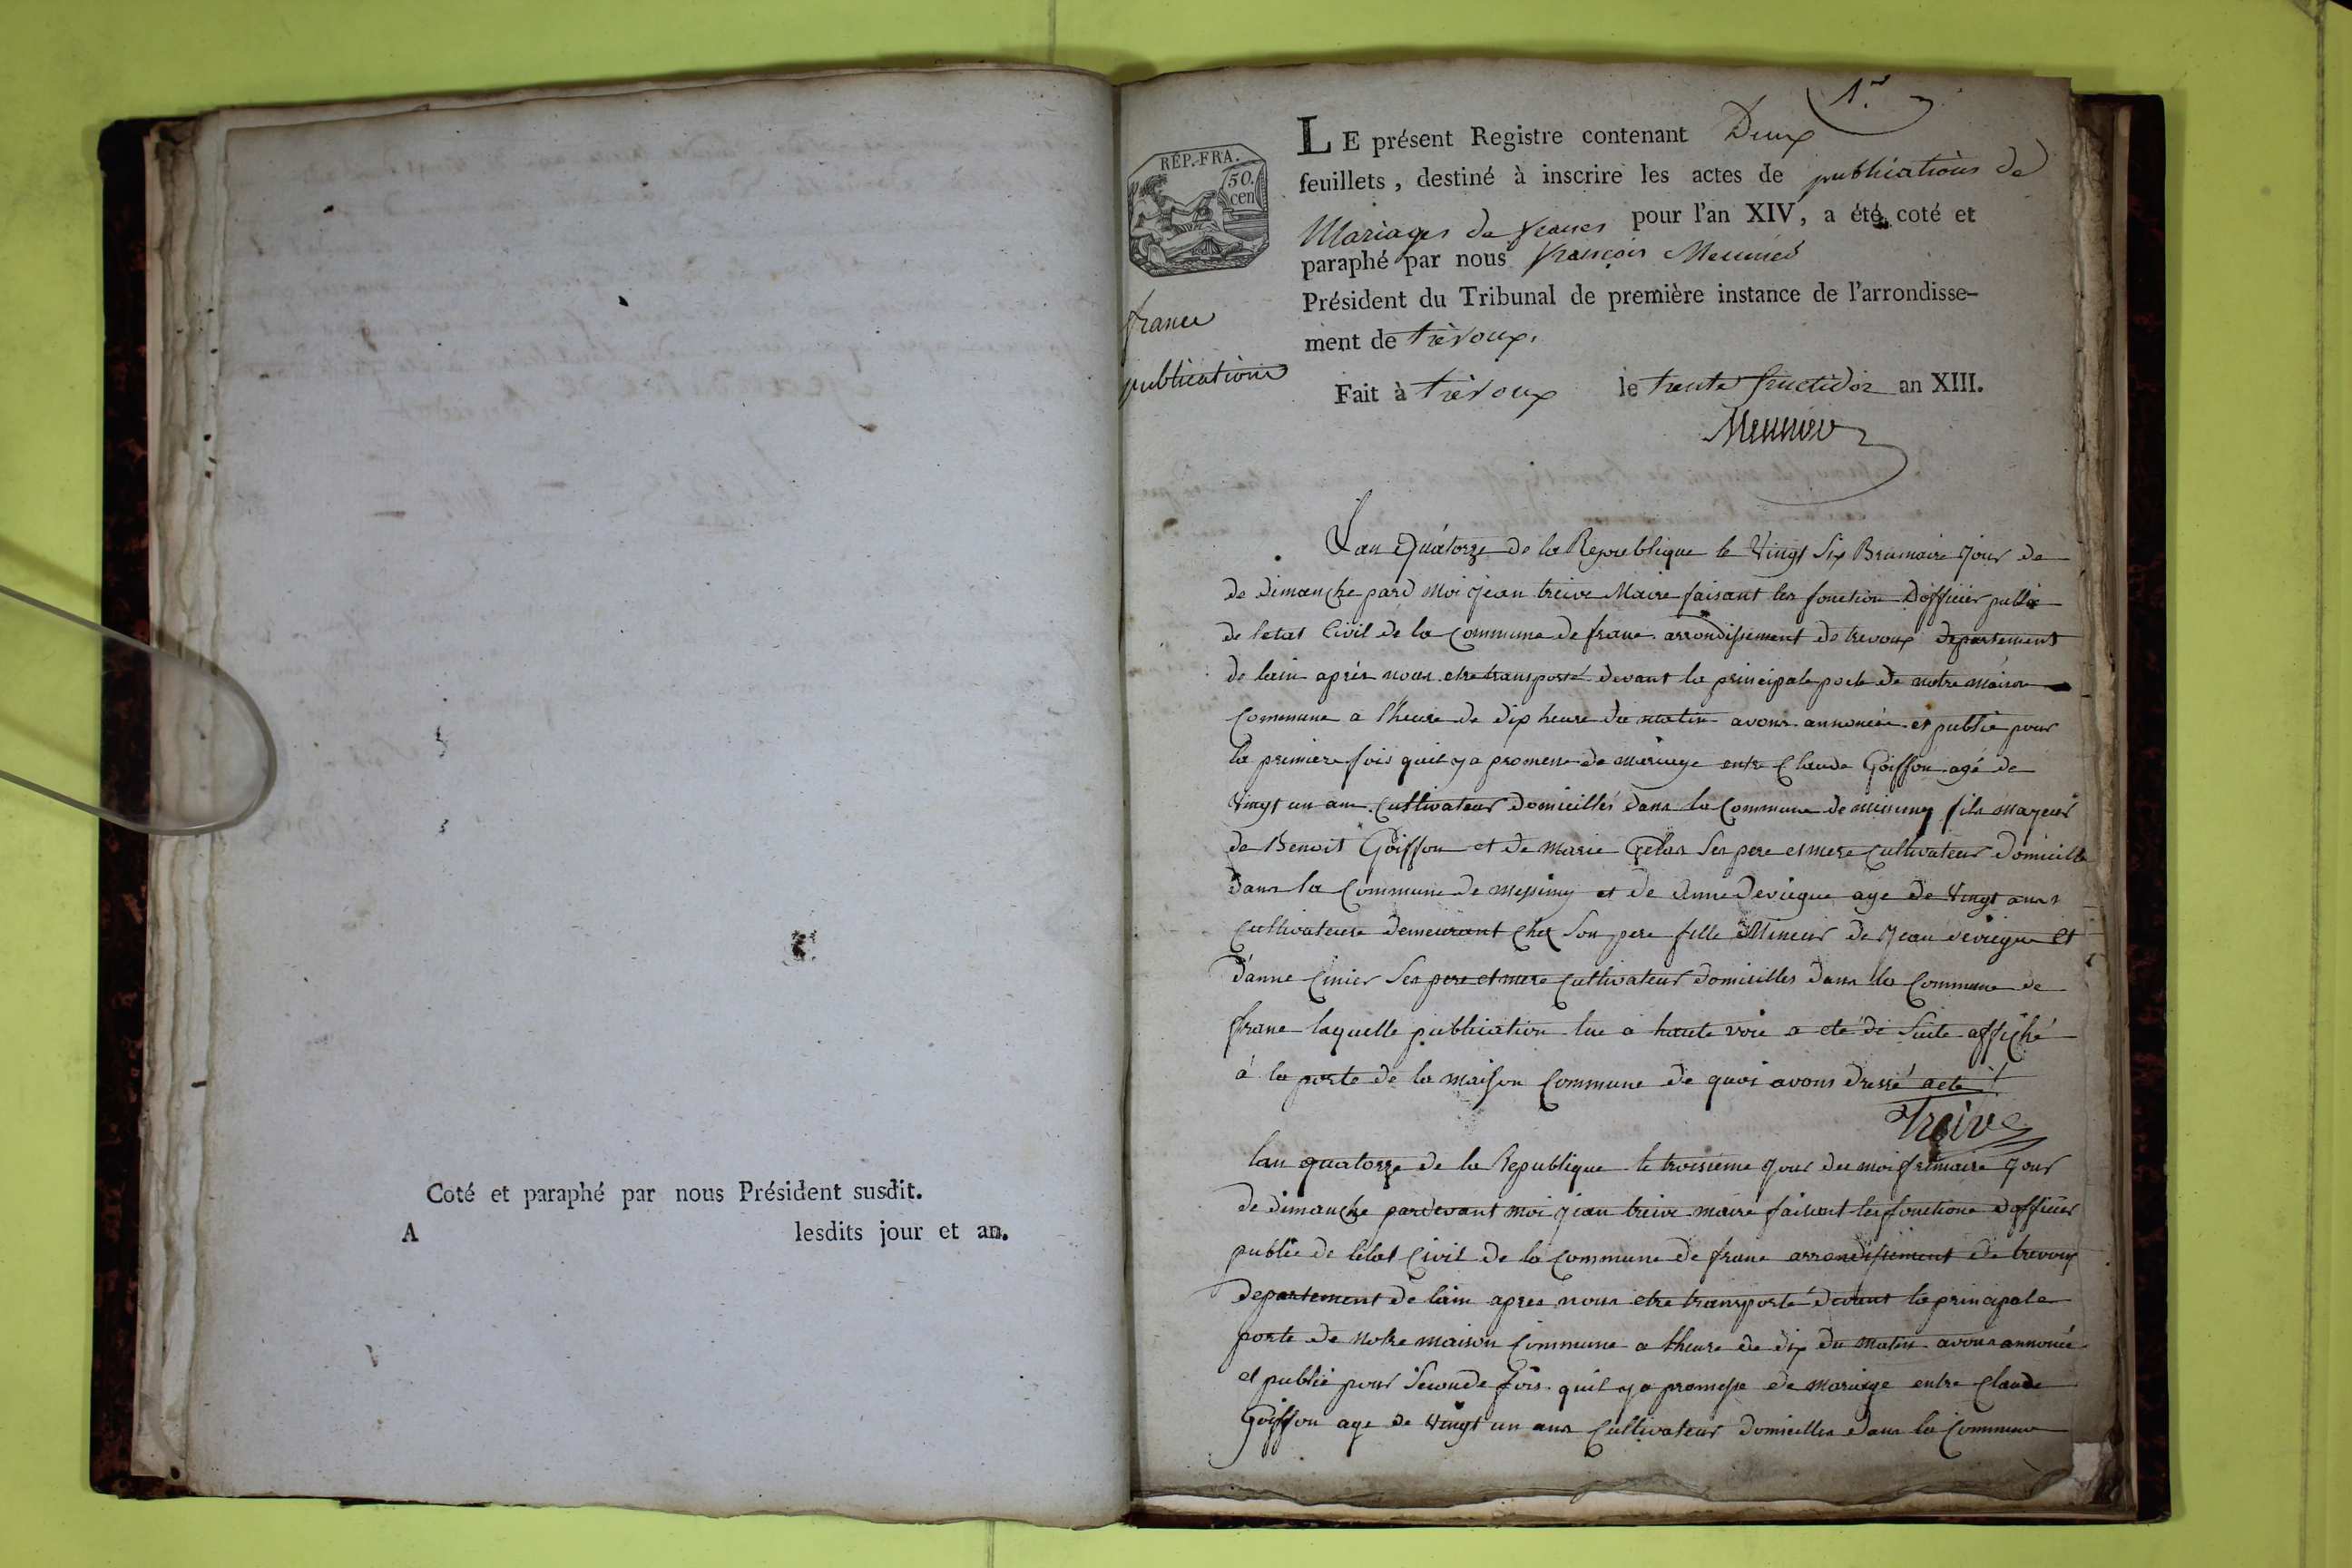 Coté et paraphé par nous Président susdit.
A lesdits jour et an.
1.er
RÉP. FRA.
50.
cen
france
publications
LE présent Registre contenant Deux
feuillets, destiné à inscrire les actes de publications de
Mariages de pour l'an XIV, a été coté et
paraphé par nous françois Meunier
Président du Tribunal de première instance de l'arrondisse-
ment de trévoux.
Fait à trévoux le trente fructidor an XIII.
Meunier
Lan Quatorze de la Republique le Vingt Six Brumaire jour de
de dimanche pard moi jean treive Maire faisant les fonction d'officier public
de letat Civil de la Commune de frane arrondissement de trevoux departement
de lain après nous etre transporté devant la principale porte de notre maison
Commune a l'heure de dix heure du matin avons annoncée et publié pour
la premiere fois quil y a promesse de mariage entre Claude Goiffon agé de
Vingt un ans Cultivateur domicillés dans la Commune de missimy fils majeur
de Benoit Goiffon et de marie Gelas Ses pere et mere Cultivateur domicille
dans la Commune de messimy et de anne deviegue age de vingt ans
Cultivateure demeurant chez Son pere fille Mineur de jean deviegue et
d'anne Cinier Ses pere et mere Cultivateur domicilles dans la Commune de
frane laquelle publication lue a haute voie a eté de Suite affiché
à la porte de la maison Commune de quoi avons dressé acte
Treive
lan quatorze de la Republique le troisieme jour du moi frimaire jour
de dimanche pardevant moi jean treive maire faisant les fonctions d'officier
public de letat Civil de la Commune de frane arrondissement de trevoux
departement de lain apres nous etre transporté devant la principale
porte de notre maison Commune a lheure de dix du matin avons annoncé
et publié pour Seconde fois quil y a promesse de mariage entre Claude
Goiffon age de vingt un ans Cultivateur domicilles dans la Commune